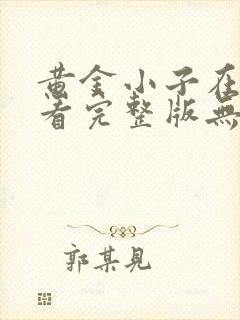 黄金小子在
看完整版無
郭某見